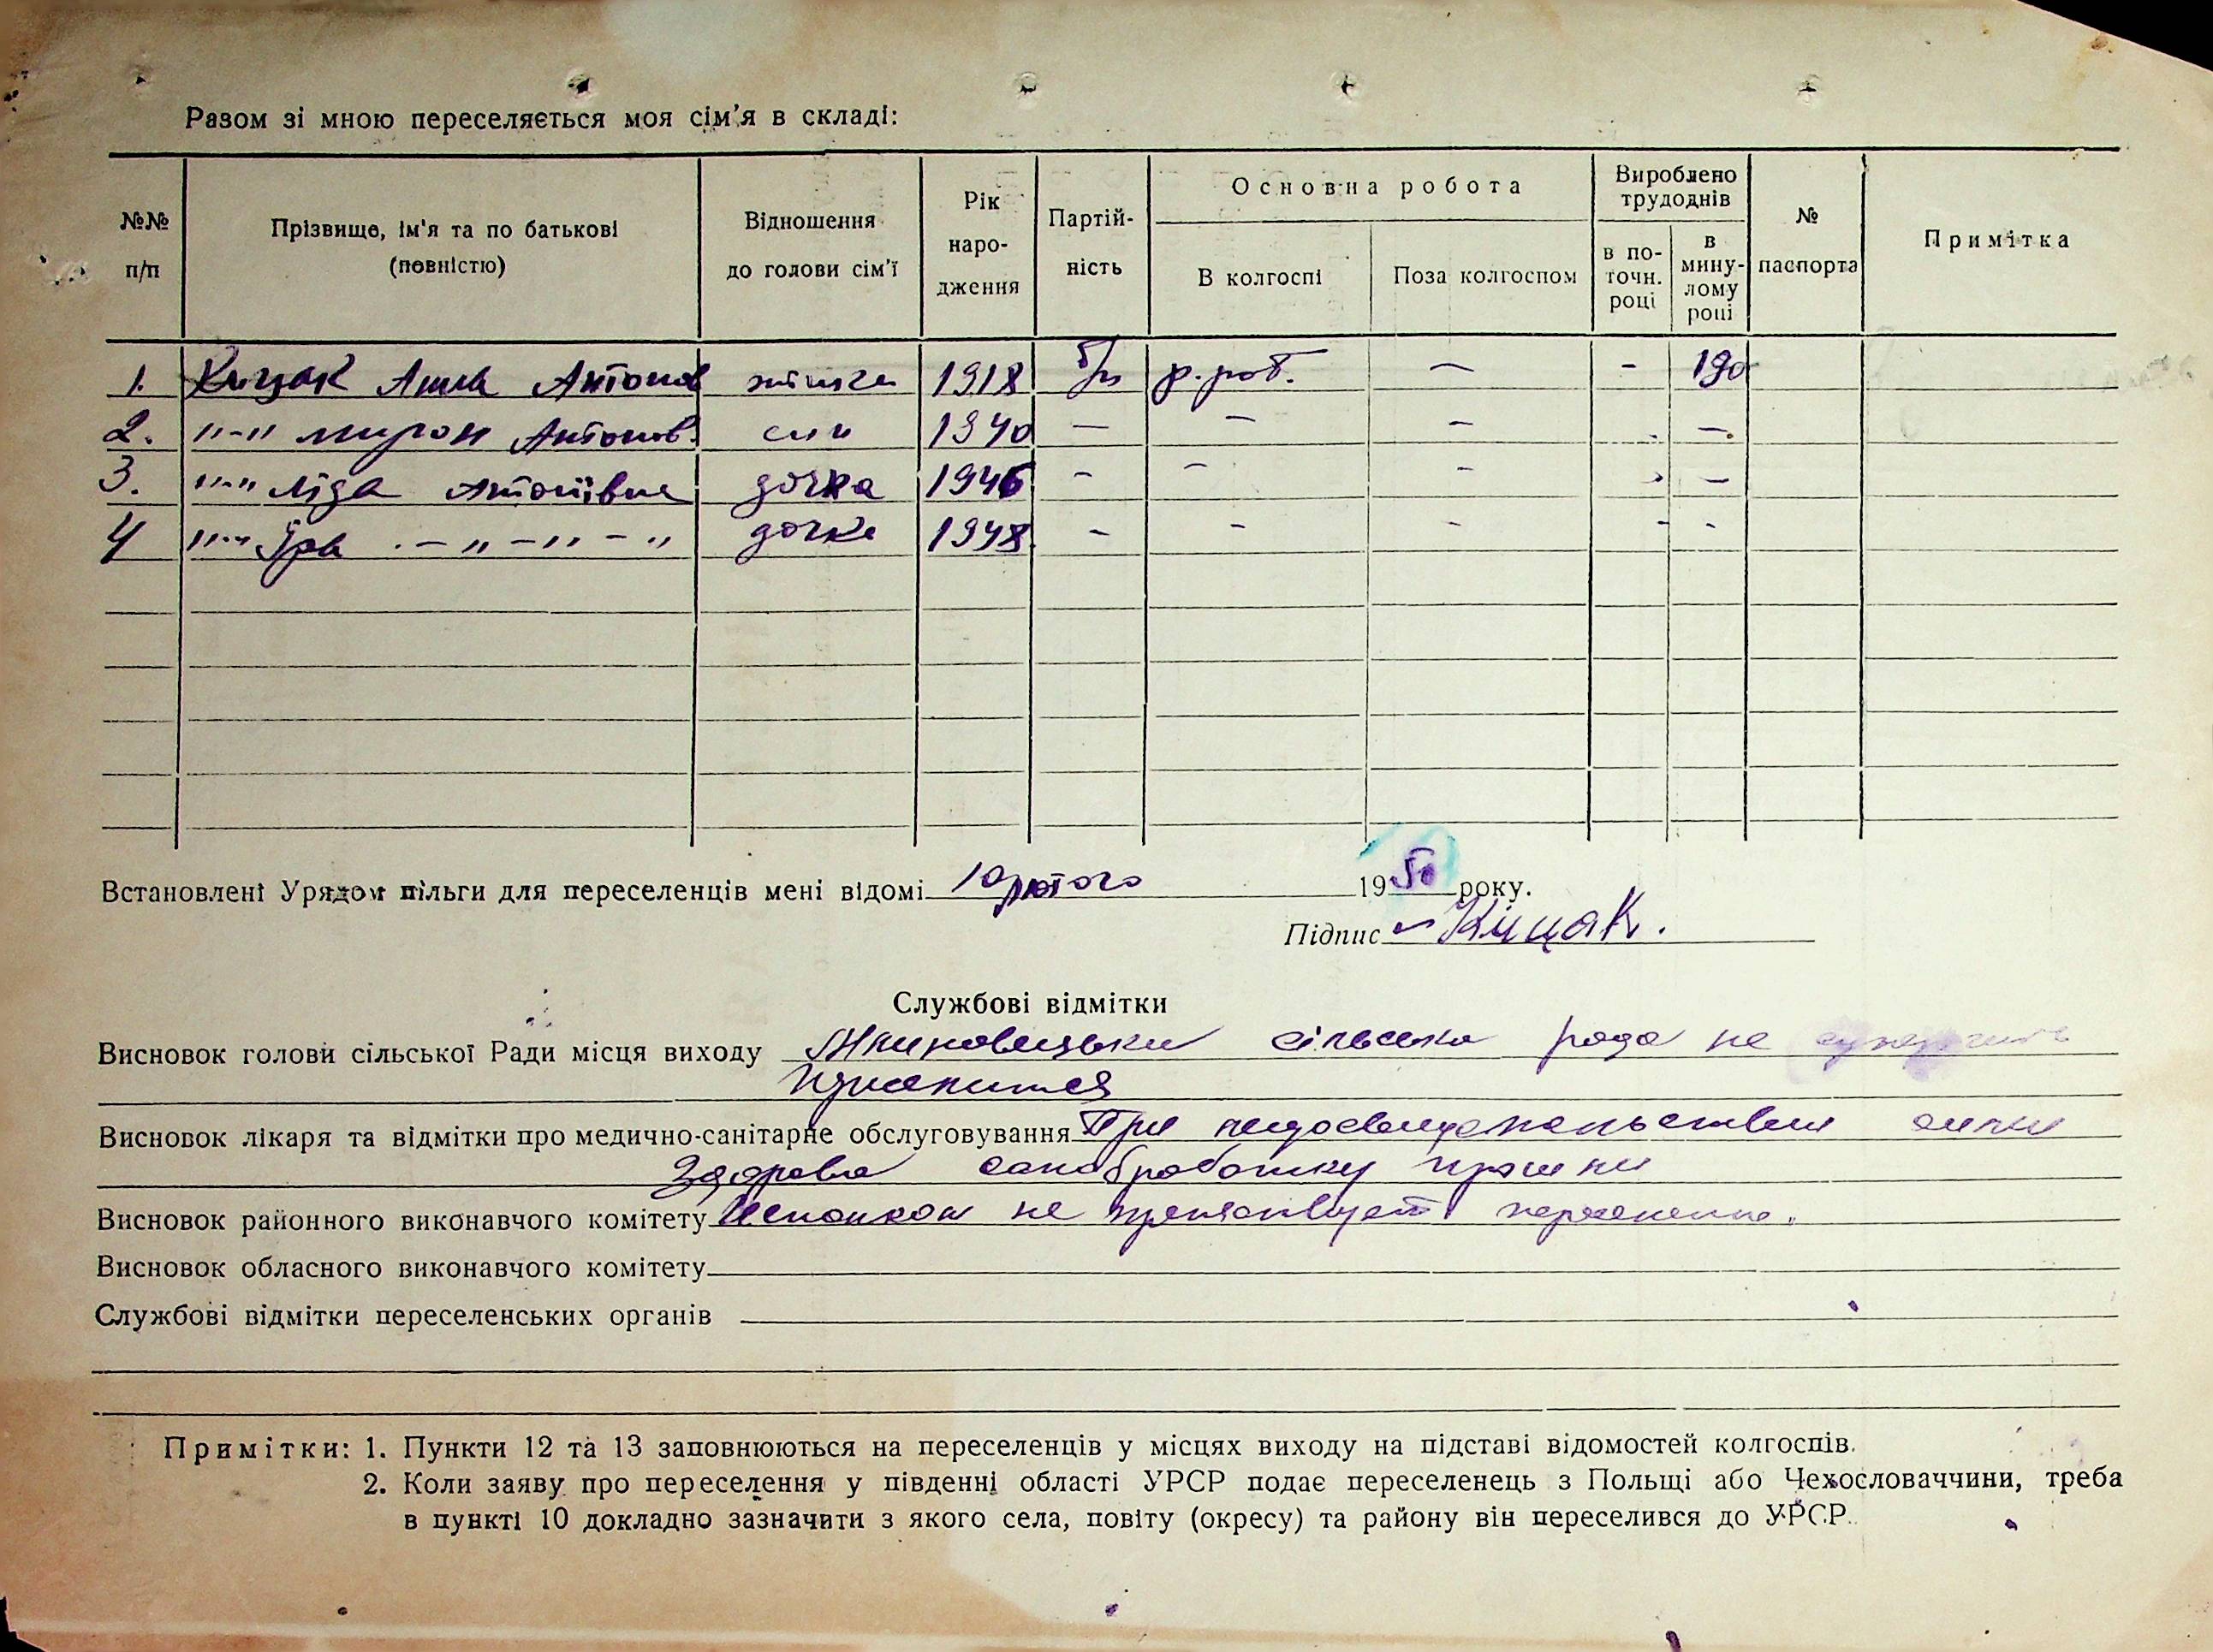 Разом зі мною переселяється моя сім'я в складі:
№№ п/п
Прізвище, ім'я та по батькові (повністю)
Відношення до голови сім'ї
Рік наро- дження
Партій- ність
Основна робота
В колгоспі
Поза колгоспом
Вироблено трудоднів
в по- точн. році
в мину- лому році
№ паспорта
Примітка
1. Кицак Анна Антонов жінка 1918 б/п р.роб. — - 190
2. "-" мирон Антонов. син 1940 — — — -
3. "-" Ліда Антонівна дочка 1946 - - - - —
4 "-" Іра - " - " - " дочка 1948. - - - - -
Встановлені Урядом пільги для переселенців мені відомі 10 лютого 1950 року.
Підпис Кицак.
Службові відмітки
Висновок голови сільської Ради місця виходу сільська рада не
Висновок лікаря та відмітки про медично-санітарне обслуговування При
Здорова санобработку
Висновок районного виконавчого комітету Исполком не препятствует переселению.
Висновок обласного виконавчого комітету
Службові відмітки переселенських органів
Примітки: 1. Пункти 12 та 13 заповнюються на переселенців у місцях виходу на підставі відомостей колгоспів.
2. Коли заяву про переселення у південні області УРСР подає переселенець з Польщі або Чехословаччини, треба
в пункті 10 докладно зазначити з якого села, повіту (окресу) та району він переселився до УРСР.